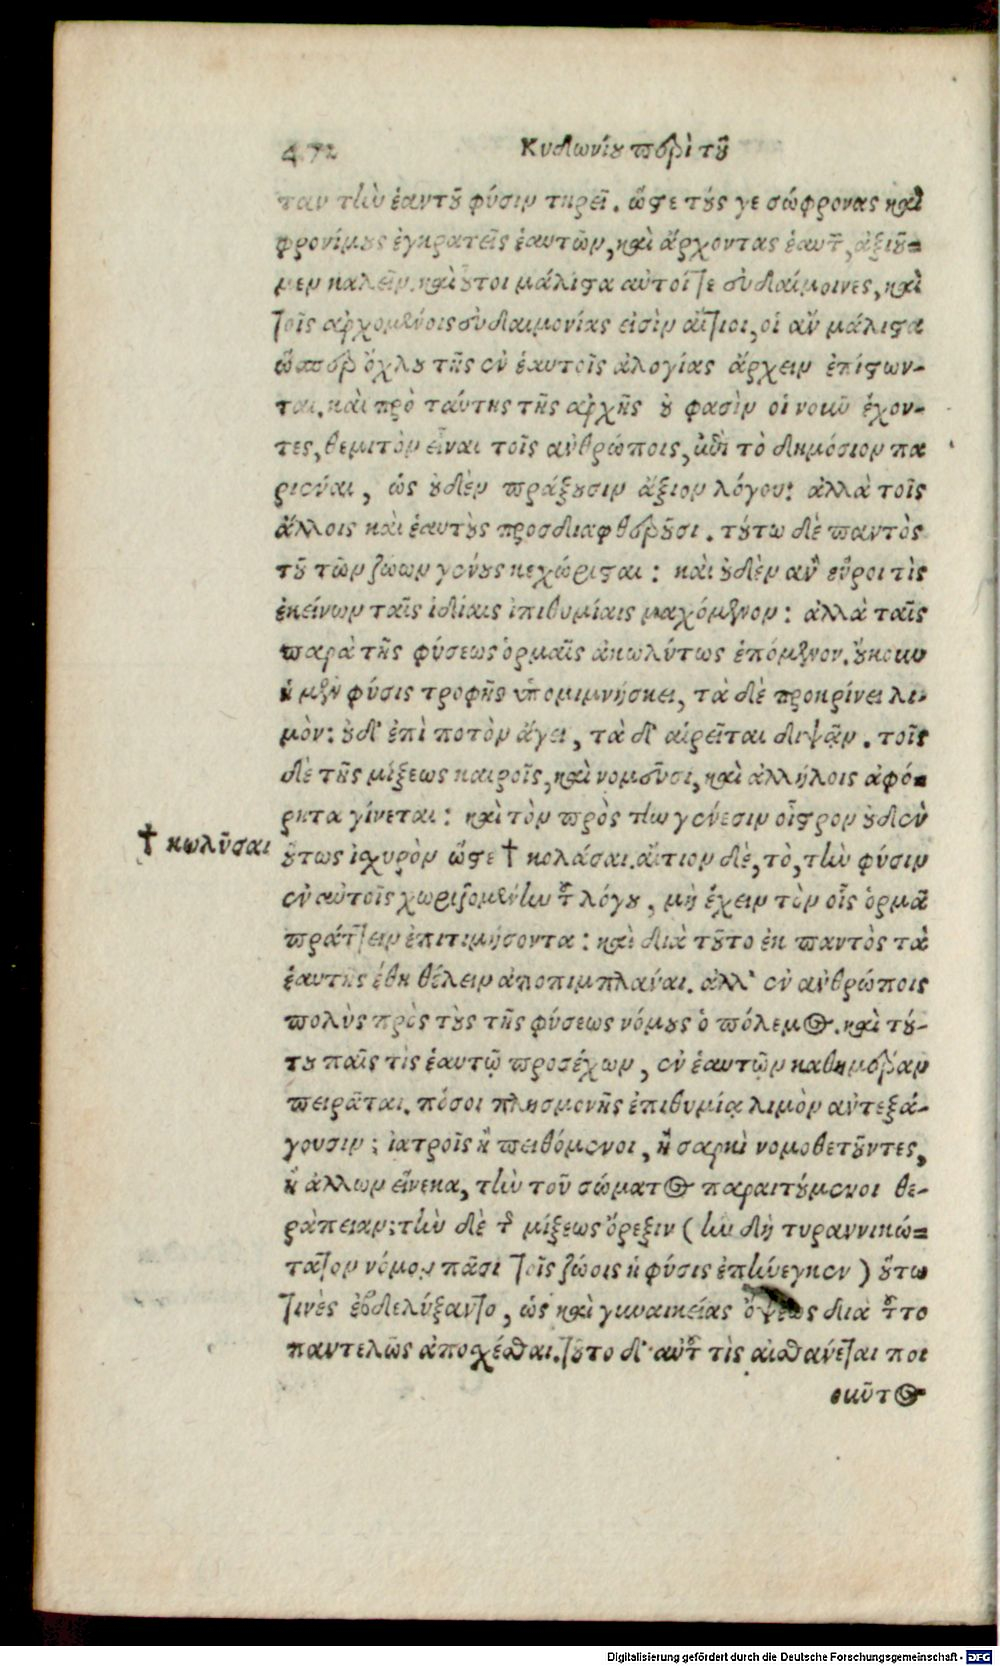 472 Κυδωνίου περὶ τοῦ
ταν τὴν ἑαυτοῦ φύσιν τηρεῖ. ὥστε τούς γε σώφρονας καὶ
φρονίμους ἐγκρατεῖς ἑαυτῶν, καὶ ἄρχοντας ἑαυτῶν, ἀξιοῦ=
μεν καλεῖν. καὶ οὗτοι μάλιστα αὐτοί τε εὐδαίμοινες, καὶ
τοῖς ἀρχομένοις εὐδαιμονίας εἰσὶν αἴτιοι, οἱ ἂν μάλιστα
ὥσπερ ὄχλου τῆς ἐν ἑαυτοῖς ἀλογίας ἄρχειν ἐπίστων-
ται. καὶ πρὸ ταύτης τῆς ἀρχῆς οὔ φασὶν οἱ νοῦν ἔχον-
τες, θεμιτὸν εἶναι τοῖς ἀνθρώποις, ἐπὶ τὸ δημόσιον πα
ριέναι, ὡς οὐδὲν πράξουσιν ἄξιον λόγου: ἀλλὰ τοῖς
ἄλλοις καὶ ἑαυτοὺς προσδιαφθεροῦσι. τούτῳ δὲ παντὸς
τοῦ τῶν ζώων γένους κεχώρισται: καὶ οὐδὲν ἂν εὕροι τὶς
ἐκείνων ταῖς ἰδίαις ἐπιθυμίαις μαχόμενον: ἀλλὰ ταῖς
παρὰ τῆς φύσεως ὁρμαῖς ἀκωλύτως ἑπόμενον. οὔκουν
ἡ μὲν φύσις τροφῆς ὑπομιμνήσκει, τὰ δὲ προκρίνει λι-
μὸν: οὐδ' ἐπὶ ποτὸν ἄγει, τὰ δ' αἱρεῖται διψᾷν. τοῖς
δὲ τῆς μίξεως καιροῖς, καὶ νομοῦσι, καὶ ἀλλήλοις ἀφό=
ρητα γίνεται: καὶ τὸν πρὸς τὴν γένεσιν οἶστρον οὐδὲν
† κωλῦσαι
οὕτως ἰσχυρὸν ὥστε † κολάσαι. αἴτιον δὲ, τὸ, τὴν φύσιν
ἐν αὐτοῖς χωριζομένην τοῦ λόγου, μὴ ἔχειν τὸν οἷς ὁρμᾷ
πράττειν ἐπιτιμήσοντα: καὶ διὰ τοῦτο ἐκ παντὸς τὰ
ἑαυτῆς ἔθη θέλειν ἀποπιμπλάναι. ἀλλ' ἐν ἀνθρώποις
πολὺς πρὸς τοὺς τῆς φύσεως νόμους ὁ πόλεμος. καὶ τού-
του παῖς τὶς ἑαυτῷ προσέχων, ἐν ἑαυτῶν καθημέραν
πειρᾶται. πόσοι πλησμονῆς ἐπιθυμίᾳ λιμὸν ἀντεξά-
γουσιν; ἰατροῖς ἢ πειθόμενοι, ἢ σαρκὶ νομοθετοῦντες,
ἢ ἄλλων εἵνεκα, τὴν τοῦ σώματος παραιτούμενοι θε-
ράπειαν; τὴν δὲ τῆς μίξεως ὄρεξιν (ἣν δὴ τυραννικώ=
τατον νόμον πᾶσι τοῖς ζώοις ἡ φύσις ἐπήνεγκεν) οὕτω
τινὲς ἐβδελύξαντο, ὡς καὶ γυναικείας ὄψεως διὰ τοῦτο
παντελῶς ἀποσχέσθαι. τοῦτο δ' αὐτοῦ τὶς αἰσθάνεται ποι
οκοῦτος
Digitalisierung gefördert durch die Deutsche Forschungsgemeinschaft - DFG